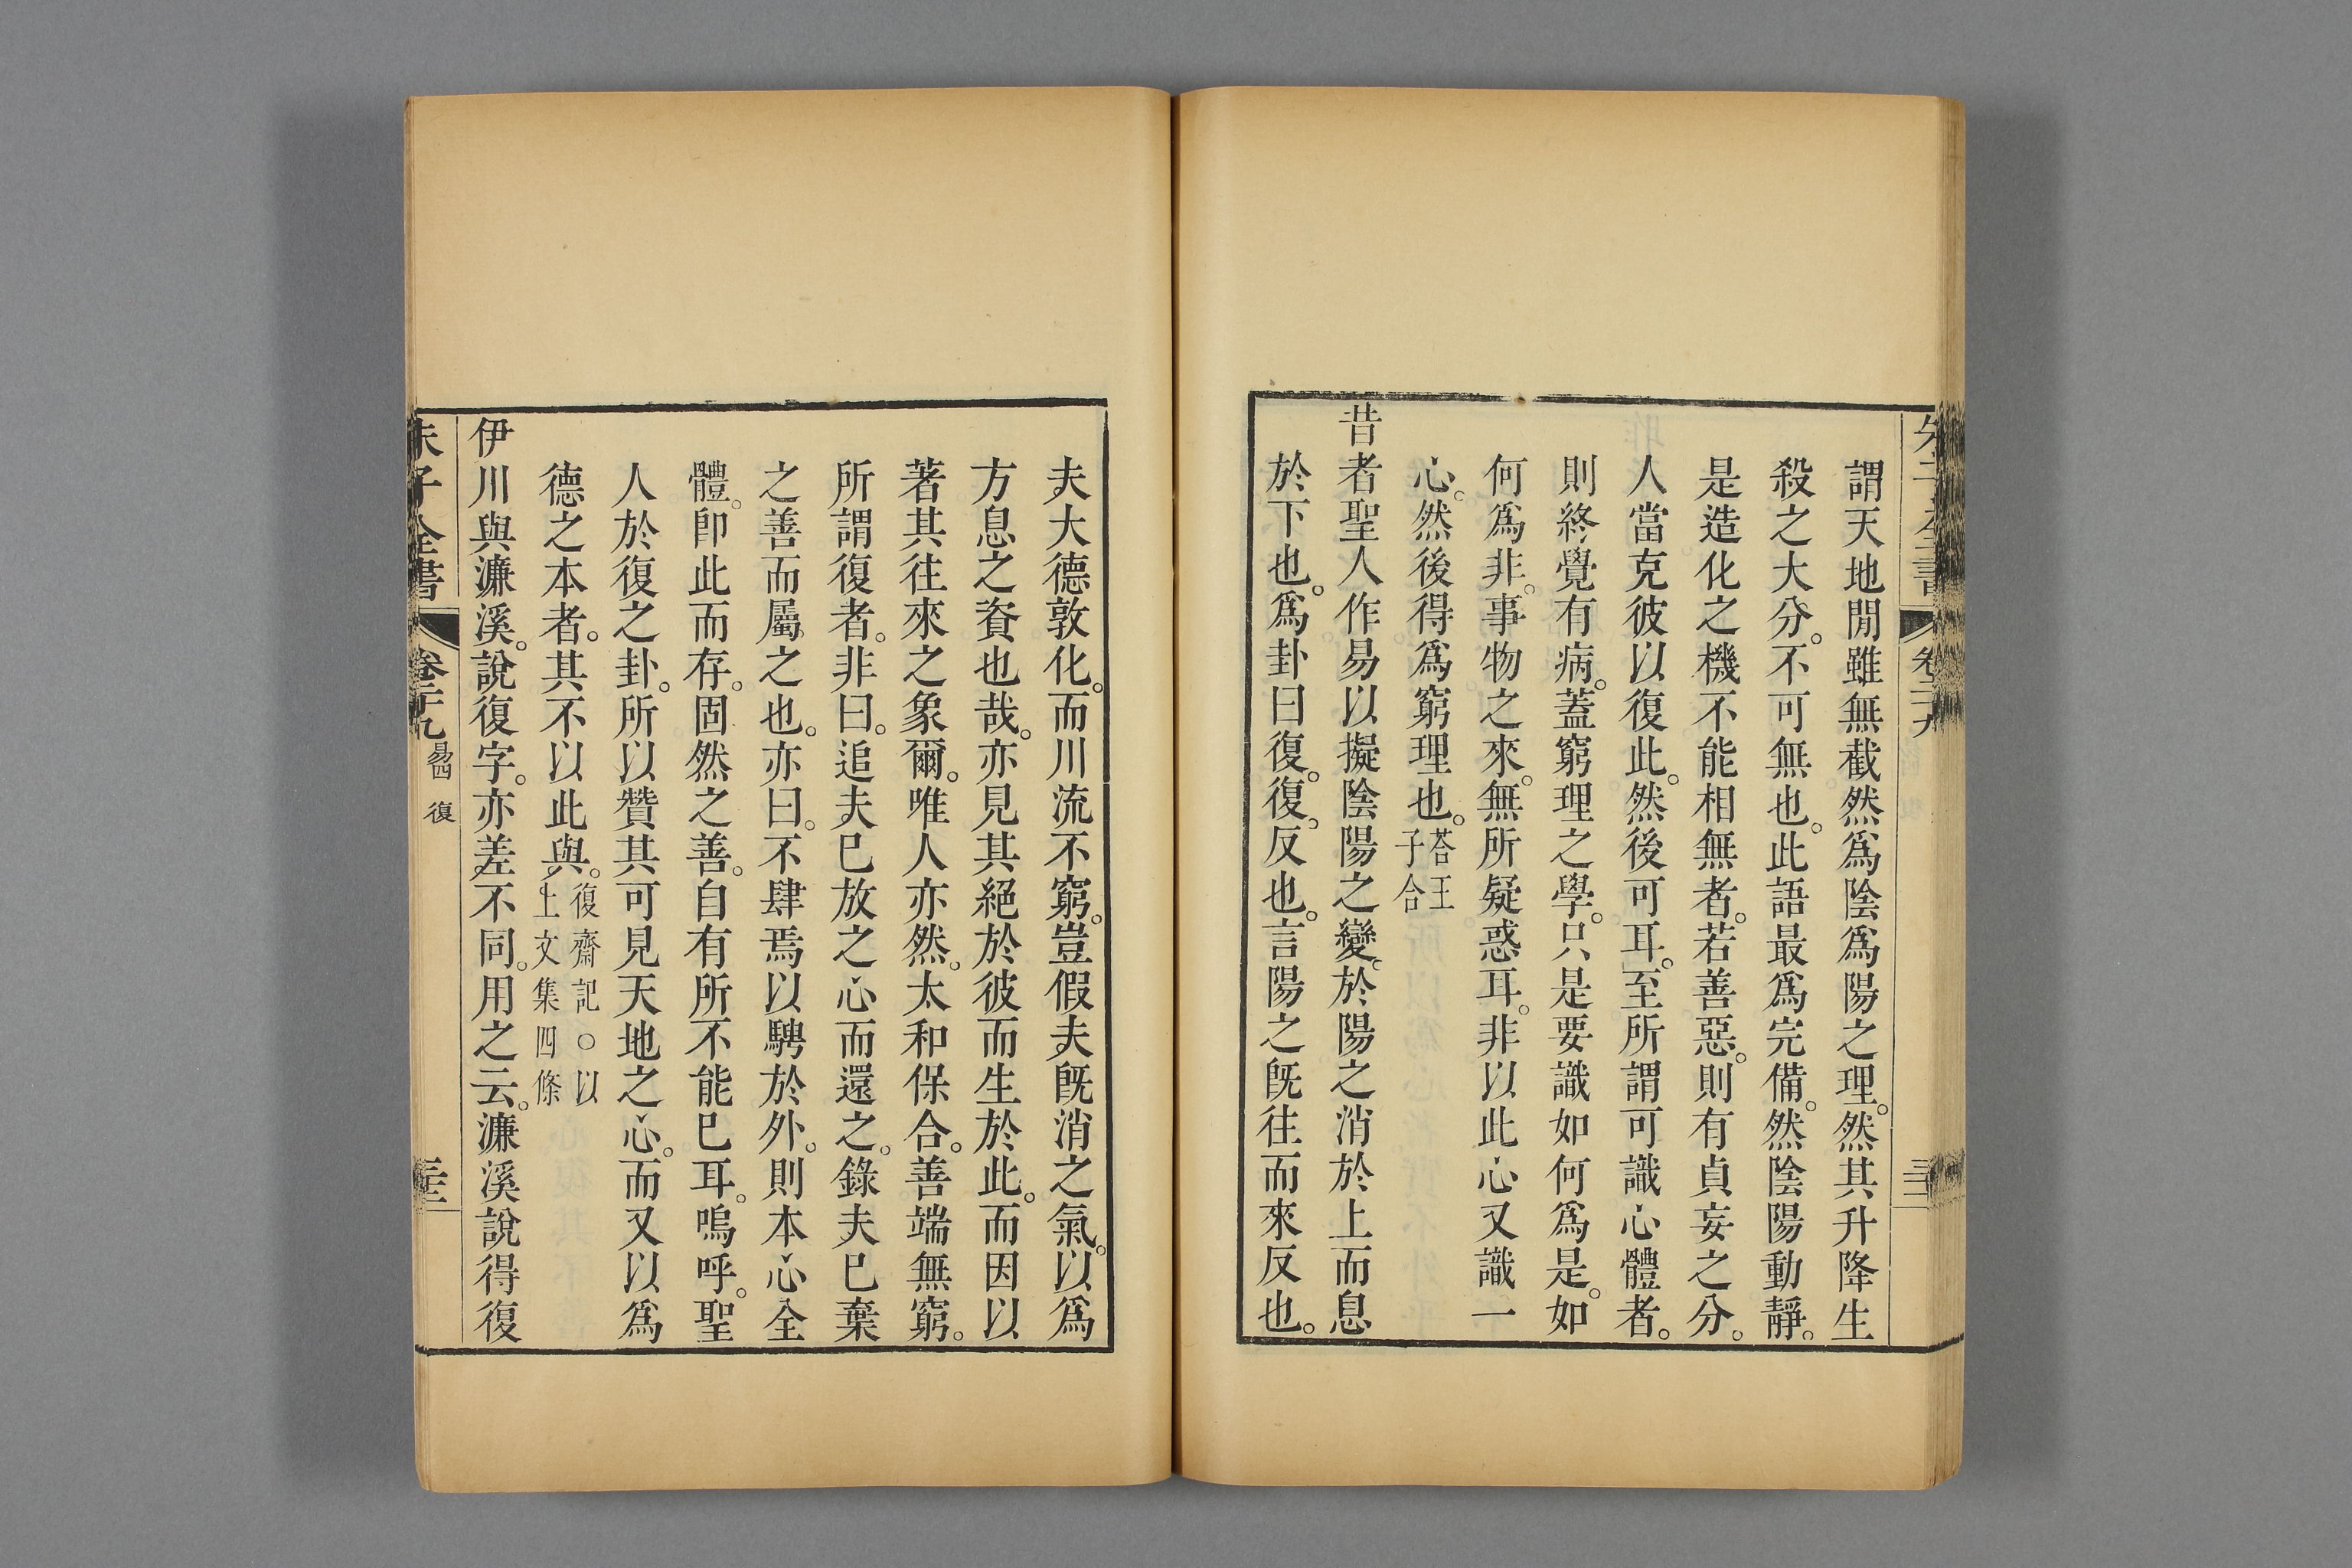 朱子全書 卷二十九
謂天地閒雖無截然爲陰爲陽之理。然其升降生
殺之大分。不可無也。此語最爲完備。然陰陽動靜。
是造化之機不能相無者。若善惡。則有貞妄之分。
人當克彼以復此。然後可耳。至所謂可識心體者。
則終覺有病。蓋窮理之學。只是要識如何爲是。如
何爲非。事物之來。無所疑惑耳。非以此心又識一
心。然後得爲窮理也。荅王子合
昔者聖人作易以擬陰陽之變。於陽之消於上而息
於下也。爲卦曰復。復。反也。言陽之旣往而來反也。
夫大德敦化。而川流不窮。豈假夫旣消之氣。以爲
方息之資也哉。亦見其絕於彼而生於此。而因以
著其往來之象爾。唯人亦然。太和保合。善端無窮。
所謂復者。非曰。追夫已放之心而還之。錄夫已棄
之善而屬之也。亦曰。不肆焉以騁於外。則本心全
體。卽此而存。固然之善。自有所不能已耳。嗚呼。聖
人於復之卦。所以贊其可見天地之心。而又以爲
德之本者。其不以此與。復齋記○以上文集四條
伊川與濂溪。說復字。亦差不同。用之云。濂溪說得復
朱子全書 卷二十九 易四 復